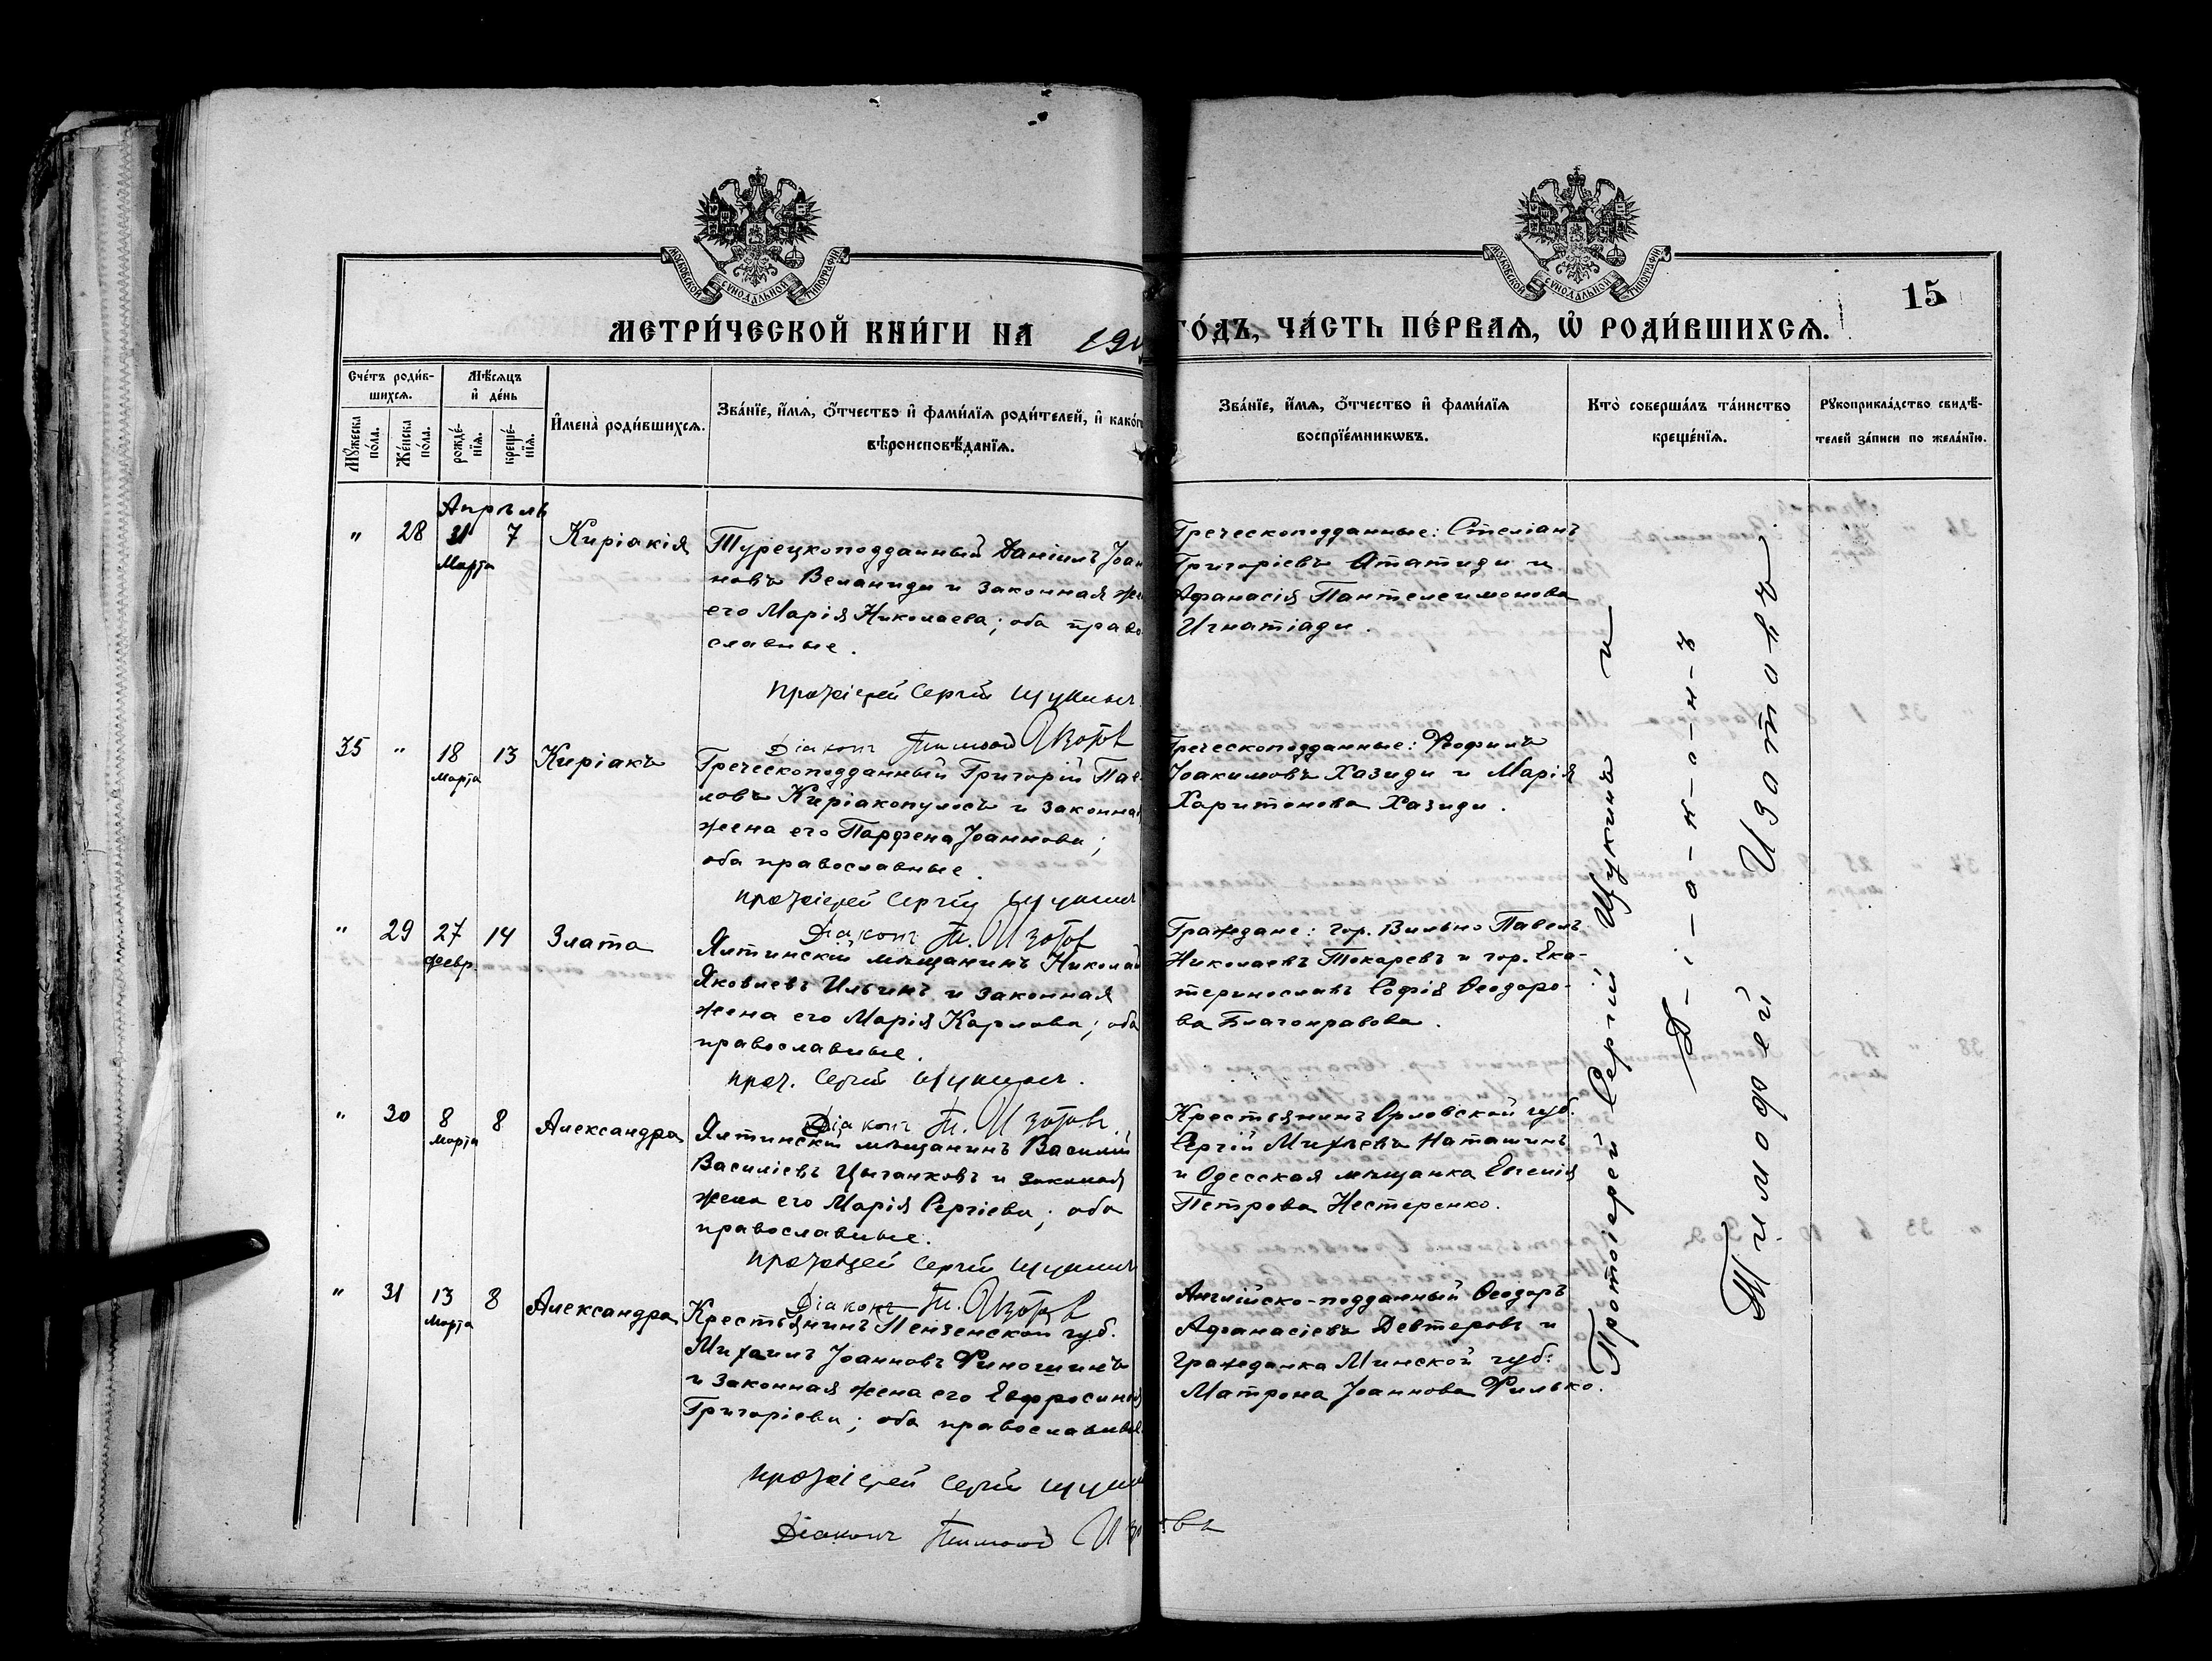 МОСКОВСКОЙ СѴНОДАЛЬНОЙ ТИПОГРАФІИ
МОСКОВСКОЙ СѴНОДАЛЬНОЙ ТИПОГРАФІИ
15
МЕТРИ́ЧЕСКОЙ КНИ́ГИ НА 19
ГО́ДЪ, ЧА́СТЬ ПЕ́РВАѦ, Ѡ҆ РОДИ́ВШИХСѦ.
Сче́тъ роди́в-
шихсѧ.
Мꙋ́жеска по́ла.
Же́нска по́ла.
Мѣ́сѧцъ
и҆ де́нь
рожде́-
нїѧ.
креще́-
нїѧ.
И҆мена̀ роди́вшихсѧ.
Зва́нїе, и҆́мѧ, ѻ҆́тчество и҆ фами́лїѧ роди́телей, и҆ како́г
вѣроисповѣ́данїѧ.
Зва́нїе, и҆́мѧ, ѻ҆́тчество и҆ фами́лїѧ
воспрїе́мникѡвъ.
Кто̀ соверша́лъ та́инство
креще́нїѧ.
Рꙋкоприкла́дство свидѣ́-
телей за́писи по жела́нїю.
Апрѣль
" 28 31 7 Киріакія
Марта
Турецкоподданный Даніилъ Іоан
новъ Веланиди и законная же
его Марія Николаева; оба право
славные.
Протоіерей Сергій Щукинъ
Діаконъ Тимоѳ Изотов
Греческоподданные: Стеліанъ
Григоріевъ Атматиди и
Афанасія Пантелеимонова
Игнатіади.
35 " 18 13 Киріакъ
марта
Греческоподданный Григорій Пав
ловъ Киріакопулосъ и законна
жена его Парфена Іоаннова;
оба православные.
Протоіерей Сергій Щукинъ
Діаконъ Т. Изотов
Греческоподданные: Ѳеофилъ
Іоакимовъ Хазиди и Марія
Харитонова Хазиди.
" 29 27 14 Злата
февр.
Ялтинскій мѣщанинъ Николай
Яковлевъ Ильинъ и законная
жена его Марія Карлова; оба
православные.
прот. Сергій Щукинъ.
Діаконъ Т. Изотовъ.
Граждане: гор. Вильно Павелъ
Николаевъ Токаревъ и гор. Ека-
теринославъ Софія Ѳеодоро-
ва Благонравова.
" 30 8 8 Александра
марта
Ялтинскій мѣщанинъ Василій
Василіевъ Цыганковъ и законная
жена его Марія Сергіева; оба
православные.
Протоіерей Сергій Щукинъ
Діаконъ Т. Изотов
Крестьянинъ Орловской губ.
Сергій Михѣевъ Наташинъ
и Одесская мѣщанка Евгенія
Петрова Нестеренко.
" 31 13 8 Александра
марта
Крестьянинъ Пензенской губ.
Михаилъ Іоанновъ Финогинъ
и законная жена его Евфросинія
Григоріева; оба православные
Протоіерей Сергій Щукин
Діаконъ Тимоѳ Изотовъ
Англійско-подданный Ѳеодоръ
Афанасіевъ Девтеровъ и
гражданка Минской губ.
Матрона Іоаннова Филько.
Протоіерей Сергій Щукинъ и
Д-і-а-к-о-н-ъ
Тимофей Изотовъ.